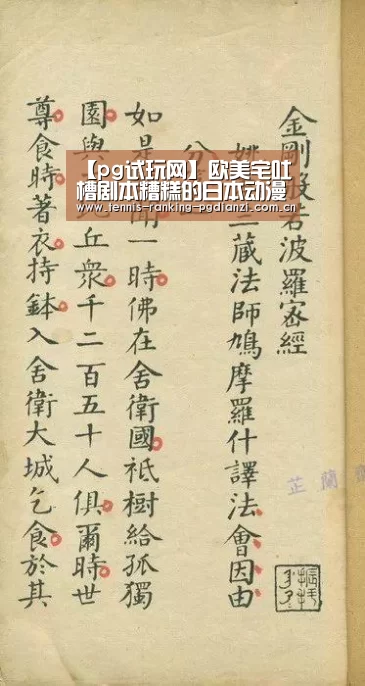 金剛般若波羅密經
姚三藏法師鳩摩羅什譯法會因由
分
如是聞一時佛在舍衛國祇樹給孤獨
園與丘衆千二百五十人俱爾時世
尊食時著衣持鉢入舍衛大城乞食於其
【pg试玩网】欧美宅吐
槽剧本糟糕的日本动漫
www.tennis-ranking-pgdianzi.com.cn
芷蘭